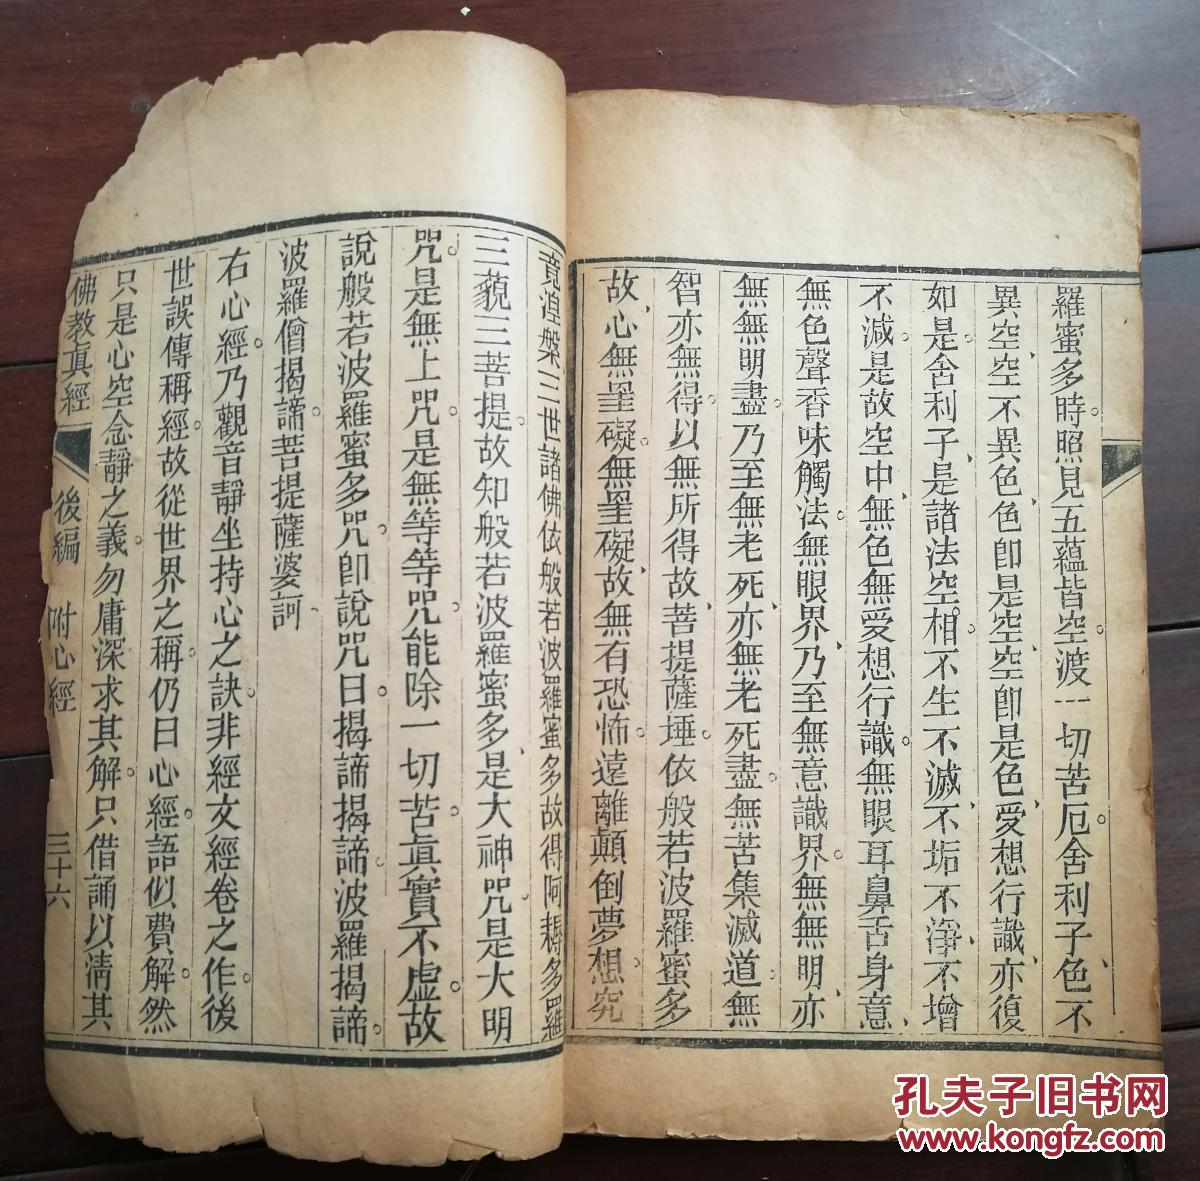 羅蜜多時。照見五蘊皆空。渡一切苦厄。舍利子。色不
異空。空不異色。色卽是空。空卽是色。愛想行識。亦復
如是。舍利子。是諸法空相。不生不滅。不垢不淨。不增
不減。是故空中。無色無愛想行識。無眼耳鼻舌身意。
無色聲香味觸法。無眼界。乃至無意識界。無無明。亦
無無明盡。乃至無老死。亦無老死盡。無苦集滅道。無
智亦無得。以無所得故。菩提薩埵。依般若波羅蜜多
故。心無罣礙。無罣礙。故無有恐怖。遠離顛倒夢想。究
竟湼槃。三世諸佛。依般若波羅蜜多。故得阿耨多羅
三藐三菩提。故知般若波羅蜜多。是大神咒。是大明
咒。是無上咒。是無等等咒。能除一切苦。眞實不虛。故
說般若波羅蜜多咒。卽說咒曰。揭諦揭諦。波羅揭諦。
波羅僧揭諦。菩提薩婆訶。
右心經。乃觀音靜坐持心之訣。非經文經卷之作。後
世誤傳稱經。故從世界之稱。仍曰心經。語似費解。然
只是心空念靜之義。勿庸深求其解。只借誦以淸其
佛教眞經 後編 附心經 三十六
孔夫子旧书网
www.kongfz.com